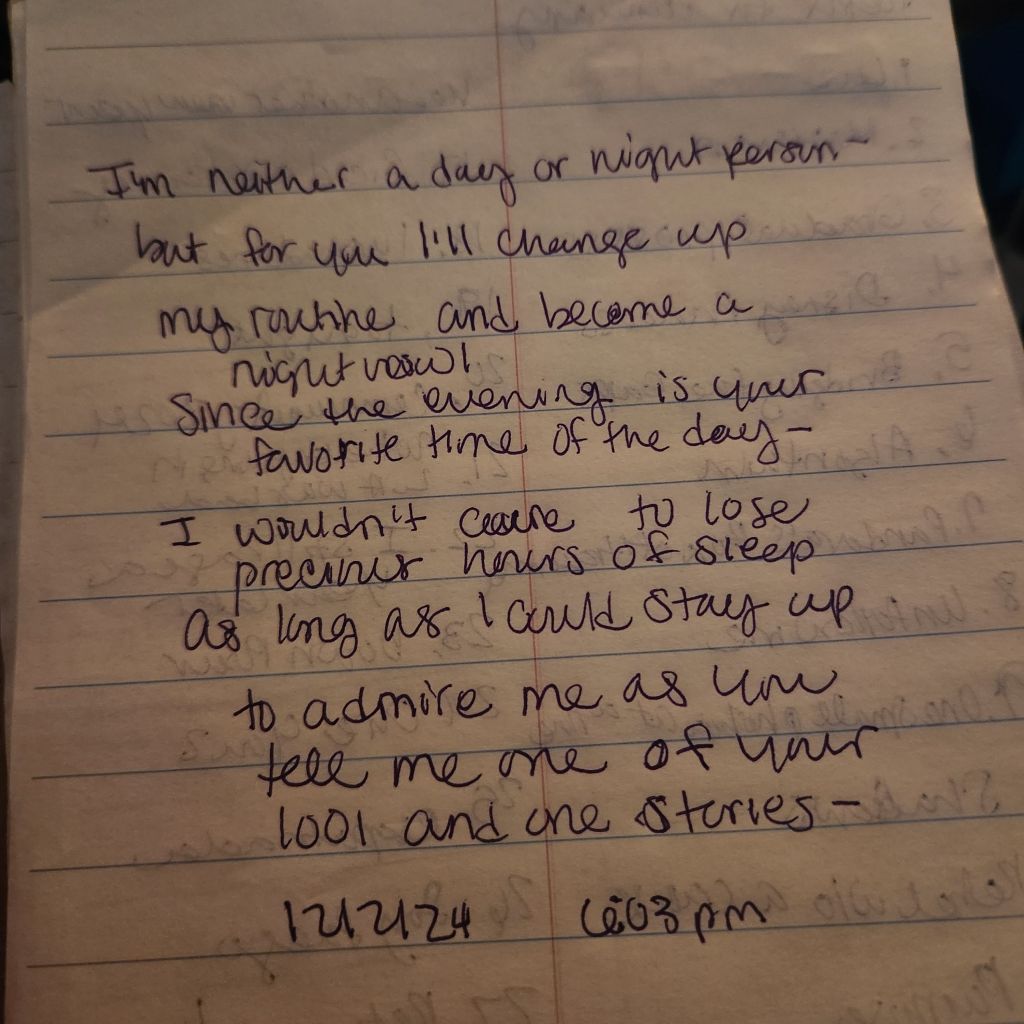 I'm neither a day or night person-
but for you I'll change up
my routine and become a
night owl
Since the evening is your
favorite time of the day-
I wouldn't care to lose
precious hours of sleep
as long as I could stay up
to admire me as you
tell me one of your
1001 and one stories-
12/2/24 6:03 pm